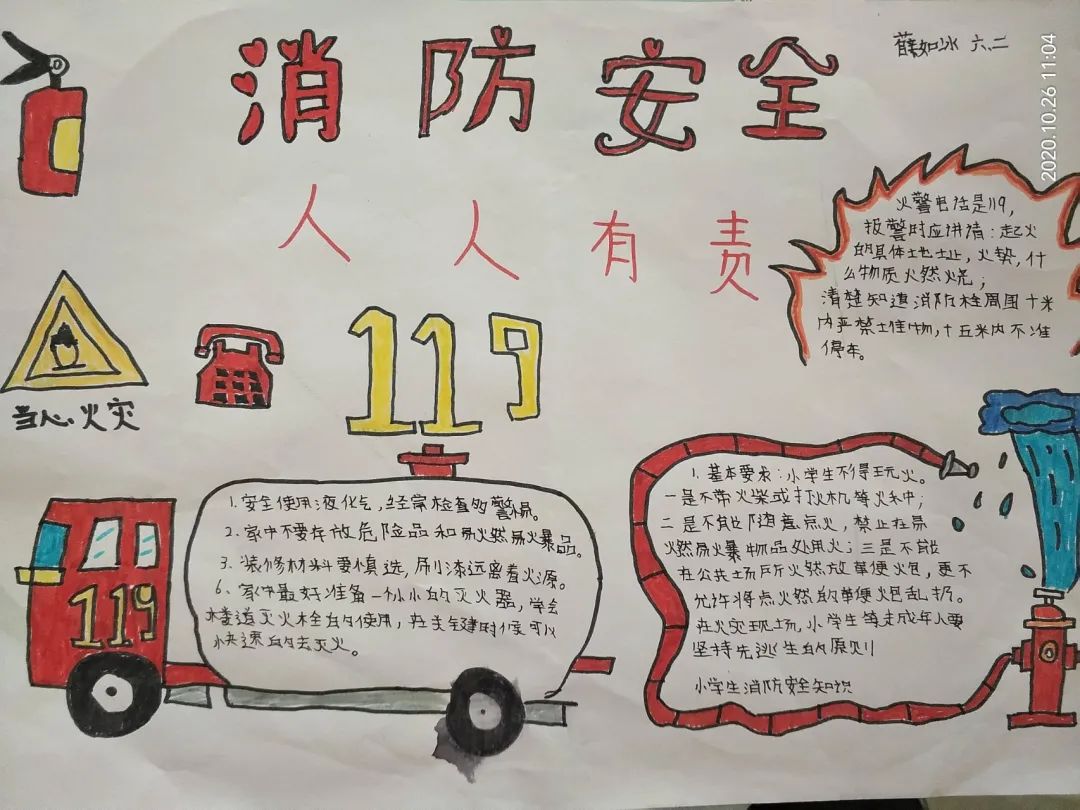 消防安全
苗如冰 六.二
2020.10.26 11:04
人人有责
火警电话是119,
报警时应讲清:起火
的具体地址,火势,什
么物质火燃烧;
清楚知道消防栓周围十米
内严禁堆物,十五米内不准
停车。
当心火灾
119
1.安全使用液化气,经常检查
2.家中不要存放危险品和易燃易爆品。
3.装修材料要慎选,远离着火源。
6.家中最好准备一小小的灭火器,学会
楼道灭火栓的使用,在时候可以
快速的去灭火。
119
1.基本要求:小学生不得玩火。
一是不带火柴或打火机等火种;
二是不能随意点火,禁止在易
燃易爆物品处用火;三是不能
在公共场所燃放草便火包,更不
允许将点燃的草便火包乱扔。
在火灾现场,小学生等未成年人要
坚持先逃生的原则
小学生消防安全知识